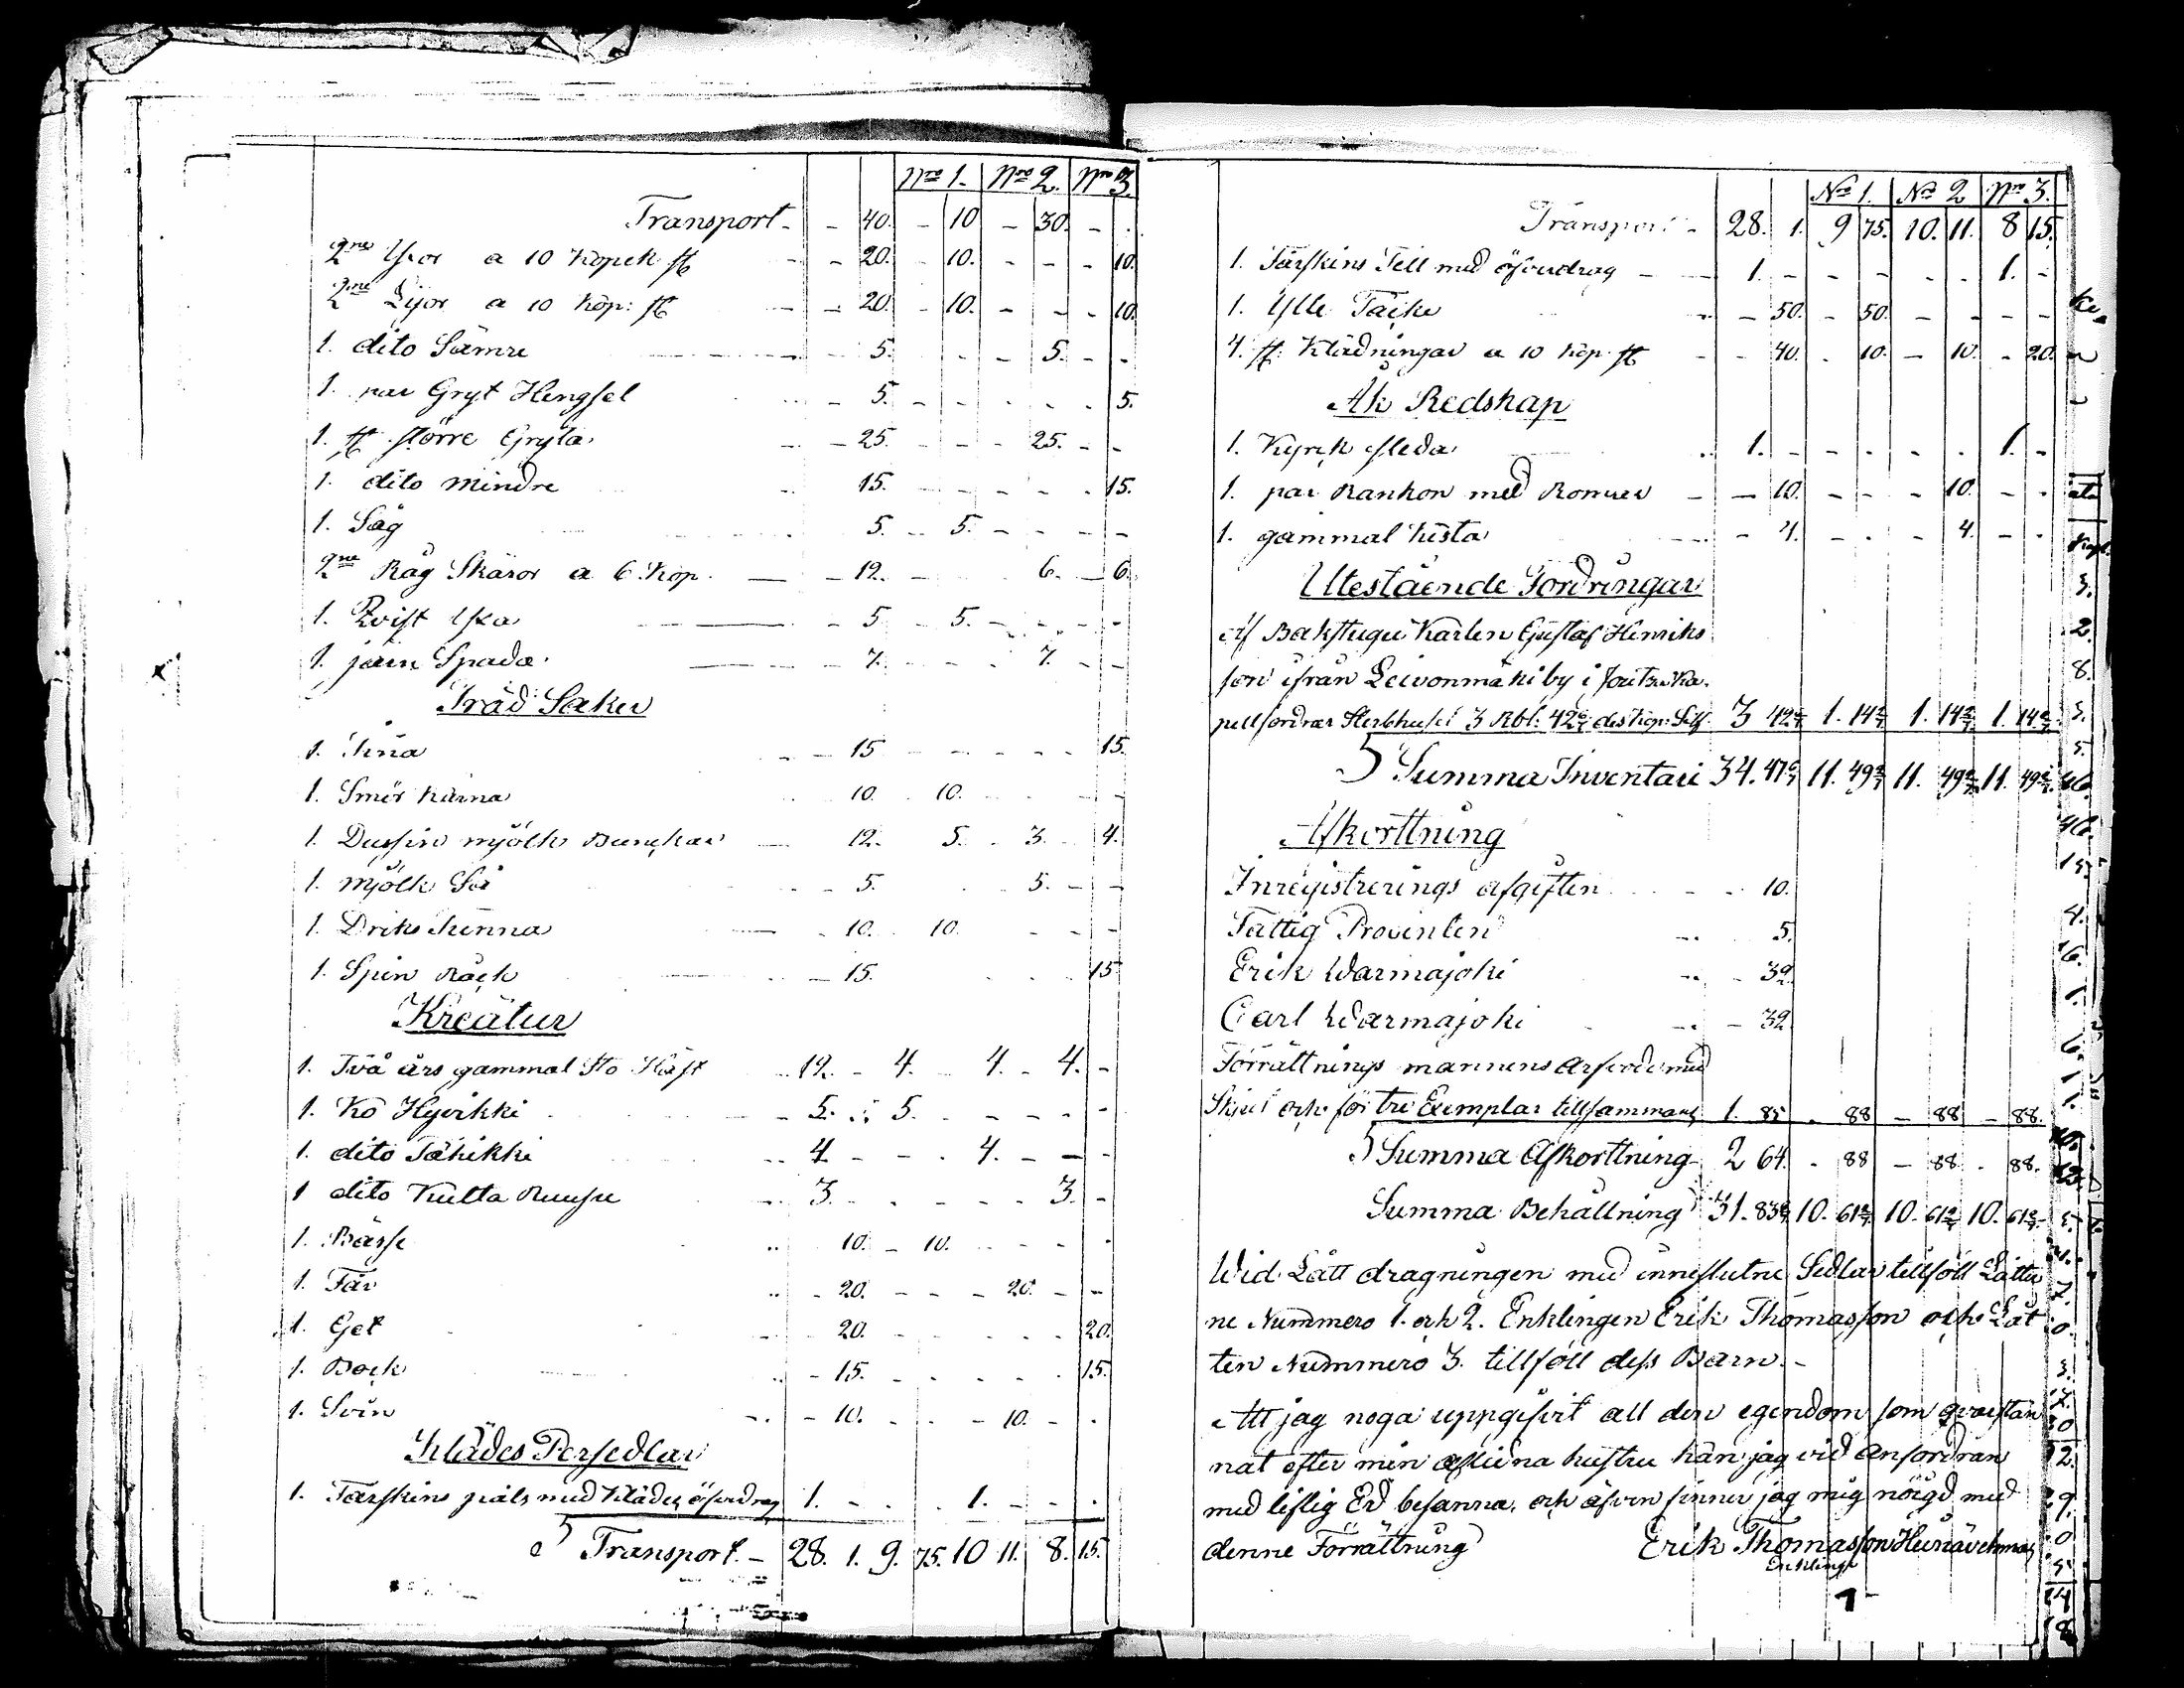 No 1. No 2. No 3.
Transport - - 40. - 10 - 30. - .
2ne Yxor a 10 Kopek st - - 20. - 10. - - - 10.
2ne Lijor a 10 Kop: st - - 20. - 10. - - - 10.
1. dito Sämre - - 5. - - - 5. - -
1. par Gryt Hengsel - 5. - - - - - 5.
1. st större Gryta - 25. - - - 25. - -
1. dito mindre 15. - - - - - 15.
1. Såg 5. - 5. - - - -
2ne Råg Skäror a 6 Kop. - 12. - - 6. - 6.
1. Qvist Yxa - 5. - 5. - - - -
1. järn Spada - 7. - - - 7. - -
Träd Saker
1. Tina - - 15 - - - - - 15.
1. Smör kärna 10. . 10. - - - -
1. Dussin mjölk Bunckar 12. 5. . 3. 4.
1. mjölk Så - 5. . . 5. - -
1. Driks Tunna - 10. . 10. - - -
1. Spin Råck - 15. 15
Kreatur
1. Två års gammal Sto Häst 12. - 4. - 4. - 4. -
1. Ko Hyvikki 5. 5. - - - -
1. dito Tähikki 4 - - . 4. - - -
1 dito Kulta Ruusu 3. . - - - - 3. -
1. Bässe 10. - 10. - - - .
1. Får - 20. - - - 20. - -
1. Get - 20. - - - - - 20.
1. Bock - 15. - - - - - 15.
1. Svin - 10. . . - 10. - .
Klädes Persedlar
1. Fårskins päls med Klädes öfverdrag 1. - . . 1. - - .
Transport. - 28. 1. 9. 75. 10 11. 8. 15.
No 1. No 2 No 3.
Transport - 28. 1. 9 75. 10. 11. 8 15.
1. Fårskins Fell med öfverdrag - 1. - - - - . 1. -
1. Ylle Täcke - 50. - 50. - - - -
4. st. Klädningar a 10 Kop st - - 40. . 10. - 10. - 20.
Åk Redskap
1. Kyrck släda 1. - - . - . 1. -
1. par Rankon med Romer - - 10. - - - 10. - .
1. gammal Kista - 4. - . - 4. - .
Utestående Fordringar
af Backstugu Karlen Gustaf Henriks
son ifrån Leivonmäki by i Joutsa Ka-
pell fordrar Sterbhuset 3 Rbl: 42 6/7 des Kop: Silf. 3 42 6/7 1. 14 2/7 1. 14 2/7 1. 14 2/7
Summa Inventari 34. 47 6/7 11. 49 2/7 11. 49 2/7 11. 49 2/7
Afkorttning
Inregistrerings afgiften - - 10.
Fattig Procenten - 5.
Erik Warmajoki - 32.
Carl Warmajoki - 32
Förrättnings mannens Arfvode med
Skjuts och för tre Exemplar tillsammans 1. 85 . 88 - 88 - 88.
Summa Afkorttning - 2 64. . 88 - 88. . 88.
Summa Behållning 31. 83 6/7 10. 61 2/7 10. 61 2/7 10. 61 2/7
Wid Lått dragningen med inneslutne Sedlar tillföll Låtter
ne Nummero 1. och 2. Enklingen Erik Thomasson och Låt
ten Nummero 3. tillföll dess Barn. -
Att jag noga uppgifvit all den egendom som qvarstan
nat efter min aflidna hustru kan jag vid anfordran
med liflig Ed besanna, och äfven finner jag mig nöigd med
denne Förrättning Erik Thomasson
Enkling